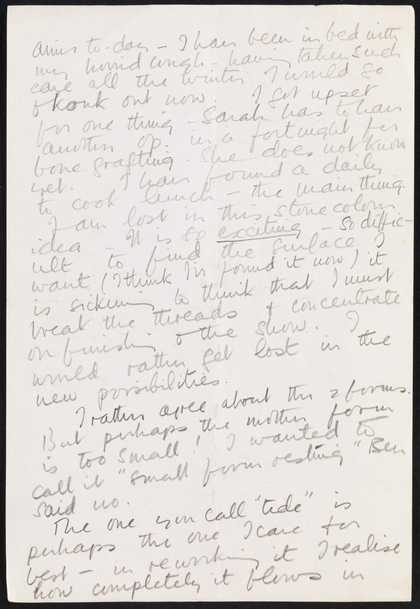 arms to-day – I have been in bed with
my horrid cough – having taken such
care all the winter I would go
& konk out now. I got upset
for one thing – Sarah has to have
another op. in a fortnight for
bone grafting. She does not know
yet. I have found a daily
to cook lunch – the main thing.
I am lost in this stone colour
idea – It is so exciting – so diffic-
ult to find the surface I
want (I think I've found it now) it
is sickening to think that I must
break the threads & concentrate
on finishing the show. I
would rather get lost in the
new possibilities.
I rather agree about the 2 forms.
But perhaps the mother form
is too small! I wanted to
call it "small form resting" Ben
said no.
The one you call "tide" is
perhaps the one I care for
best – in reworking it I realise
how completely it flows in